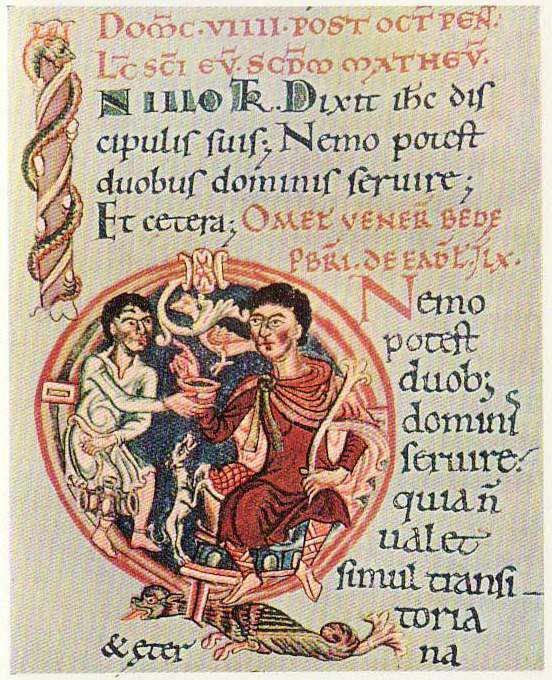 DOM̄C·VIIII·POST OCT̄ PEN̄·
LC̄ SC̄I EV̄·SCD̄M MATHEV̄·
IN ILLO T̄R. Dixit ihc dis
cipulis suis; Nemo potest
duobus dominis seruire;
Et cetera; OMEL VENER̄ BEDE
PBR̄I·DE EAD̄ L̄·
Nemo
potest
duob;
dominis
seruire:
quia n̄
ualet
simul transi-
toria
& ęter na